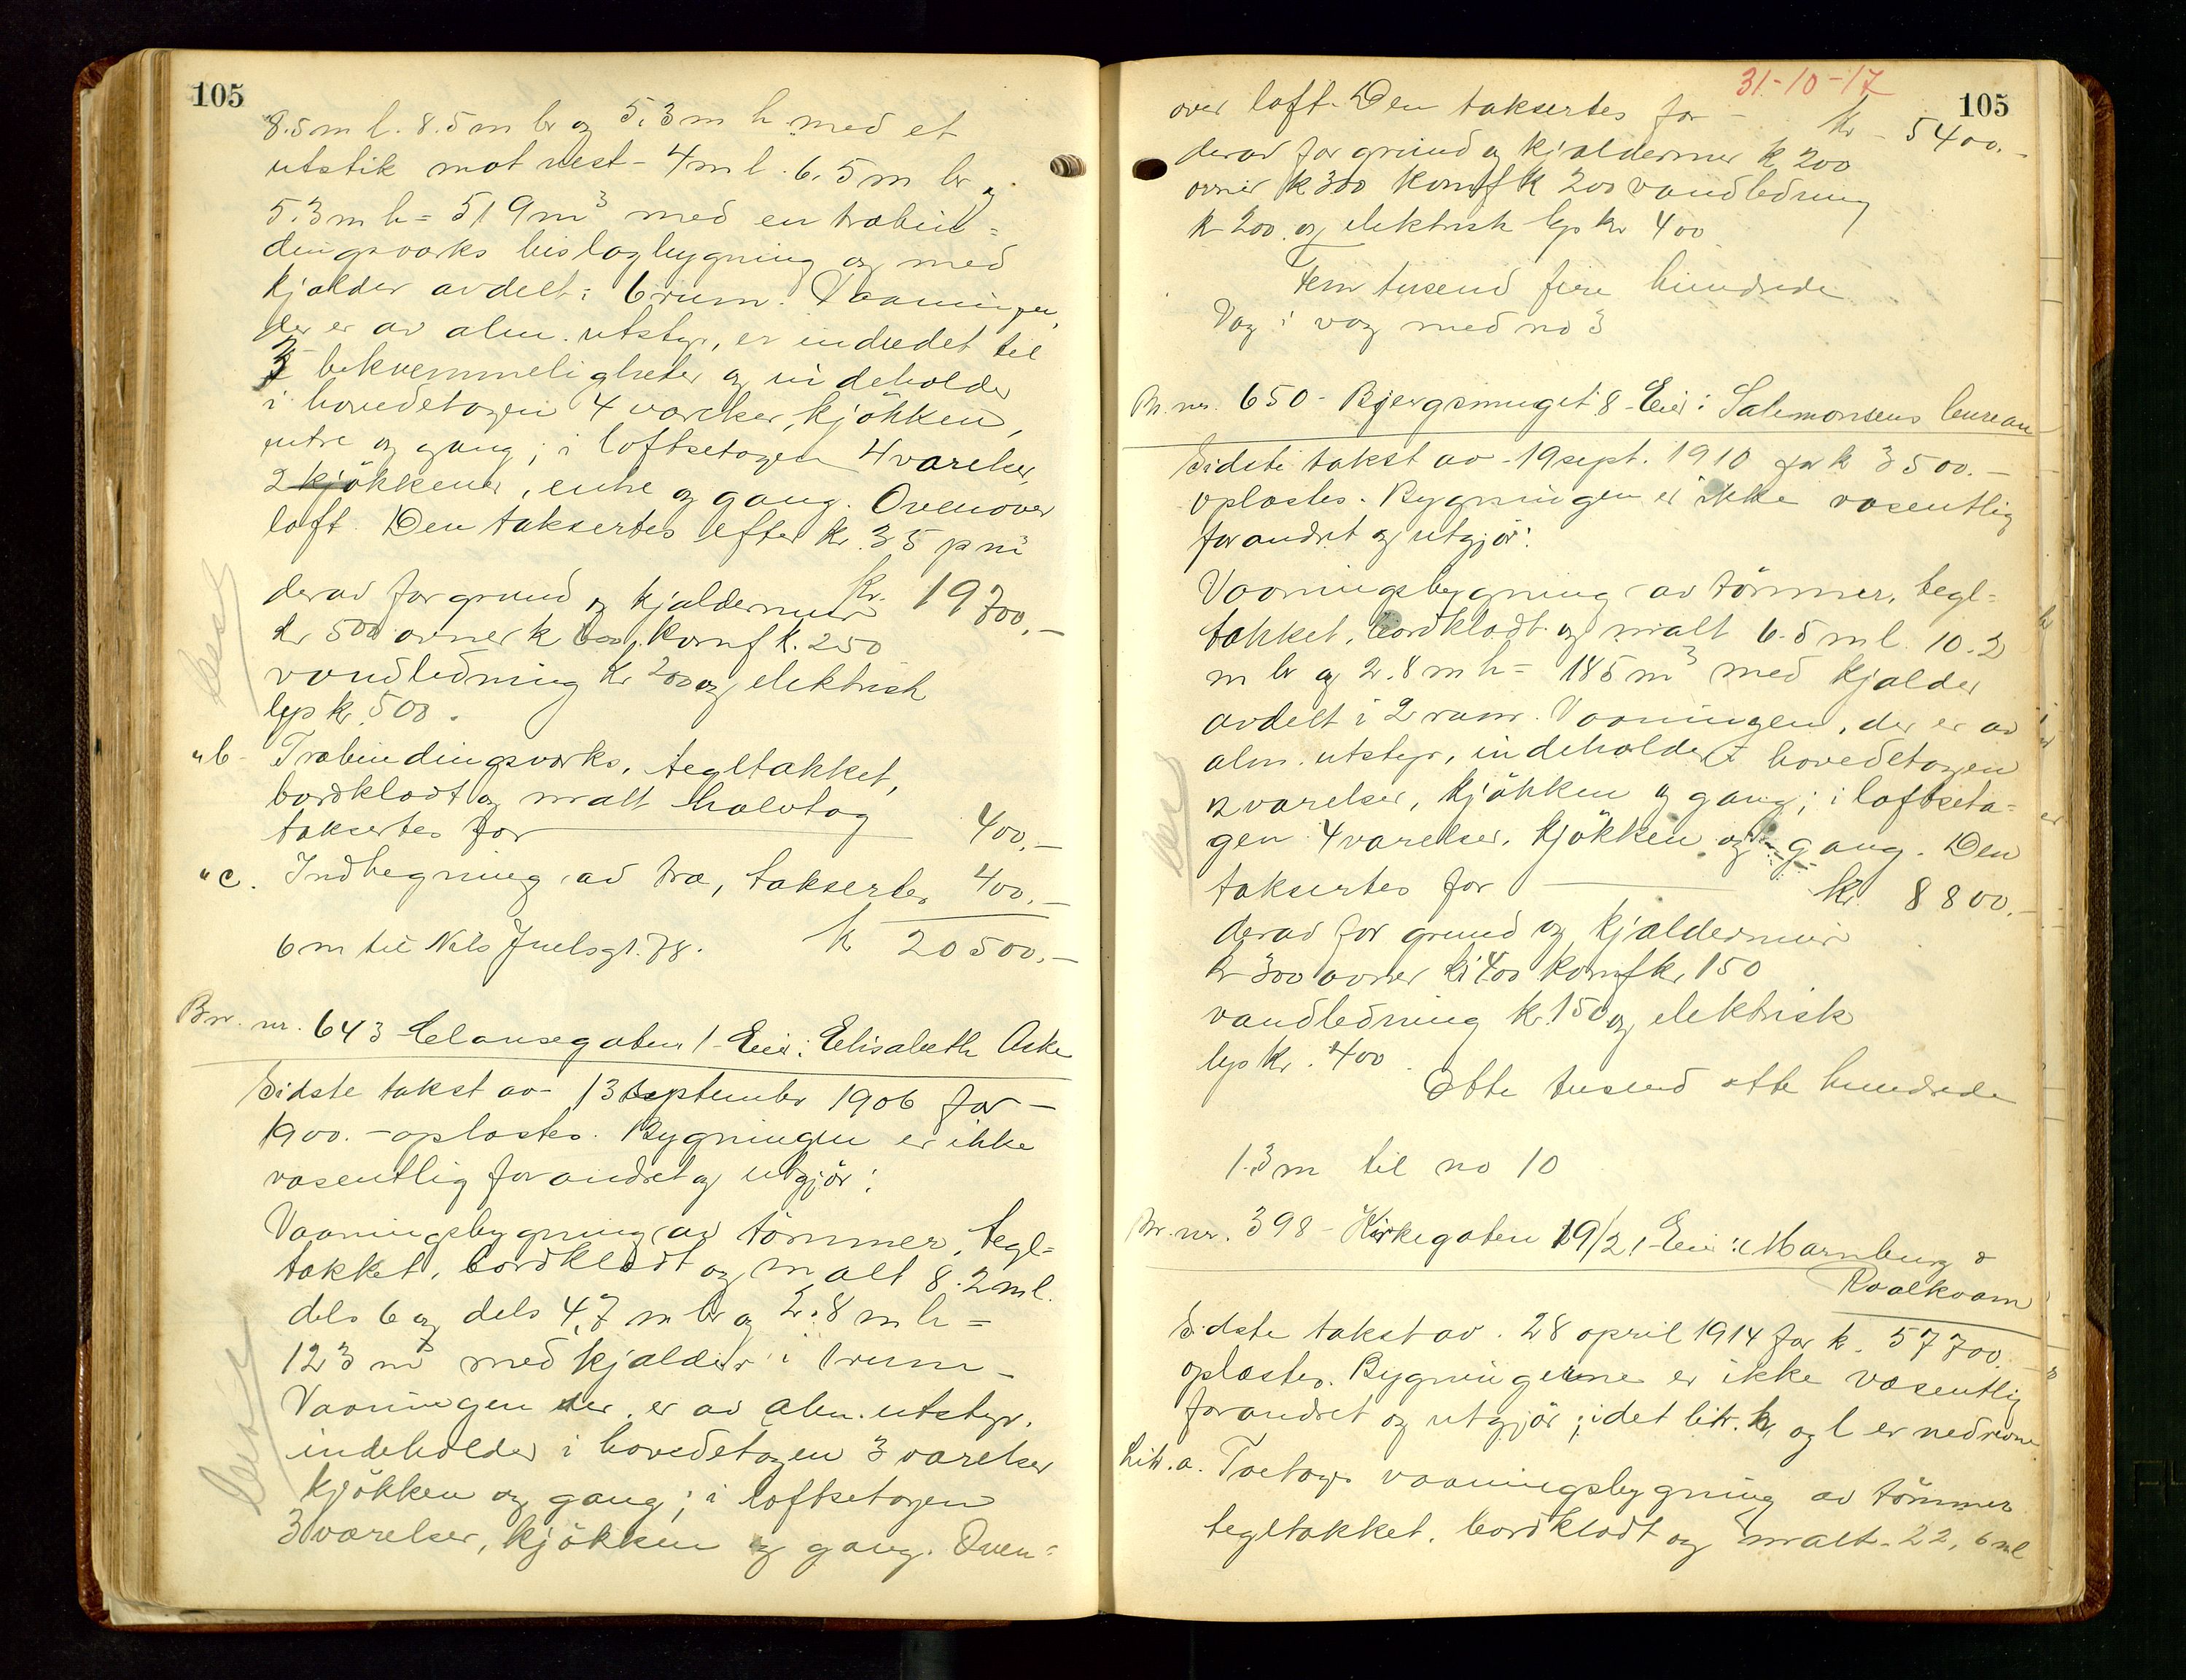 105
8.5 m l. 8.5 m br og 5.3 m h med et
utstik mot vest - 4 m l. 6.5 m br og
5.3 m h = 519 m³ med en træbin=
dingsværks bislagbygning og med
kjælder avdelt i 6 rum. Vaaningen,
der er av alm. utstyr, er indredet til
3 bekvemmeligheter og indeholder
i hovedetagen 4 værelser, kjökken,
entre og gang; i loftsetagen 4 værelser,
2 kjökkener, entre og gang. Ovenover
loft. Den taksertes efter kr. 35 p m³
kr. 19700.-
derav for grund og kjældermur
kr 500 ovner k komf k. 250
vandledning kr 200 og elektrisk
lys kr. 500.
"b- Træbindingsværks, tegltækket,
bordklædt og malt halvtag
taksertes for 400.-
"c. Indhegning av træ, taksertes 400.-
6 m til Nils Juelsgt. 78. k 20500.-
Br. nr. 643 Clausegaten 1 - Eier: Elisabeth Aske
Sidste takst av 13 september 1906 for -
1900.- oplæstes. Bygningen er ikke
væsentlig forandret og utgjör:
Vaaningsbygning av tömmer, tegl=
tækket, bordklædt og malt 8.2 m l.
dels 6 og dels 4,7 m br og 2.8 m h =
123 m³ med kjælder i 1 rum -
Vaaningen der er av alm. utstyr.
indeholder i hovedetagen 3 værelser
kjökken og gang; i loftsetagen
3 værelser, kjökken og gang. Oven=
31-10-17
105
over loft. Den taksertes for - kr - 5400.-
derav for grund og kjældermur k 200
ovner k 300 komf k 200 vandledning
k 200 og elektrisk lys kr 400
Fem tusend fire hundrede
Væg i væg med no 3
Br. nr. 650 - Bjergsmuget 8 - Eier: Salemonsens bureau
Sidste takst av 19 sept. 1910 for k 3500.-
oplæstes. Bygningen er ikke væsentlig
forandret og utgjör:
Vaaningsbygning av tömmer, tegl=
tækket, bordklædt og malt 6.5 m l. 10.2
m br og 2.8 m h = 185 m³ med kjælder
avdelt i 2 rum. Vaaningen, der er av
alm. utstyr, indeholder i hovedetagen
2 værelser, kjökken og gang; i loftseta=
gen 4 værelser, kjökken og gang. Den
taksertes for kr. 8800.-
derav for grund og kjældermur
kr 300 ovner kr 400 komf kr. 150
vandledning kr. 150 og elektrisk
lys kr. 400
Otte tusend otte hundrede
1.3 m til no 10
Br. nr. 398 - Kirkegaten 19/21 - Eier: Marnburg &
Roalkvam
Sidste takst av 28 april 1914 for k. 57700.-
oplæstes. Bygningerne er ikke væsentlig
forandret og utgjör; idet litr. k og l er nedrevne
Litr. a. Toetages vaaningsbygning av tömmer
tegltækket, bordklædt og malt - 22,6 m l